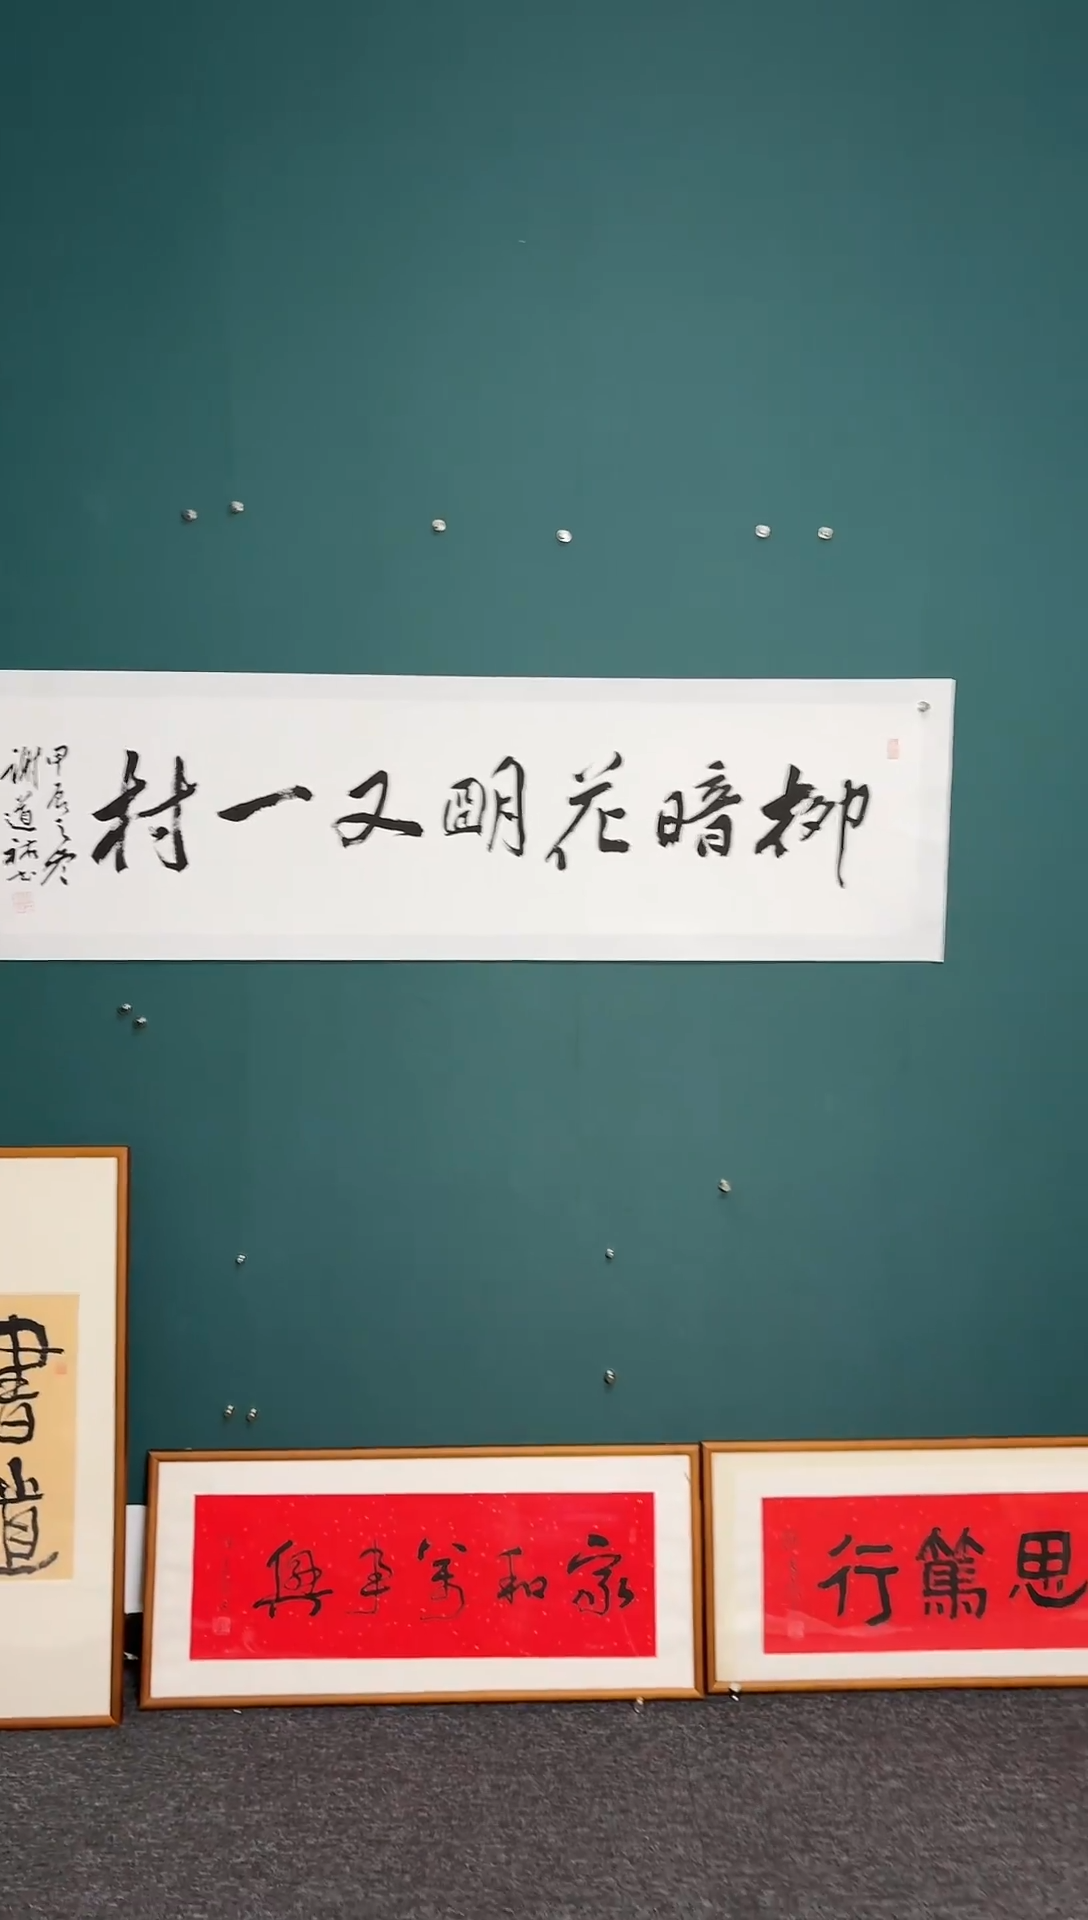 柳暗花明又一村
甲辰之冬
谢道祐书
書道
家和萬事興
思篤行